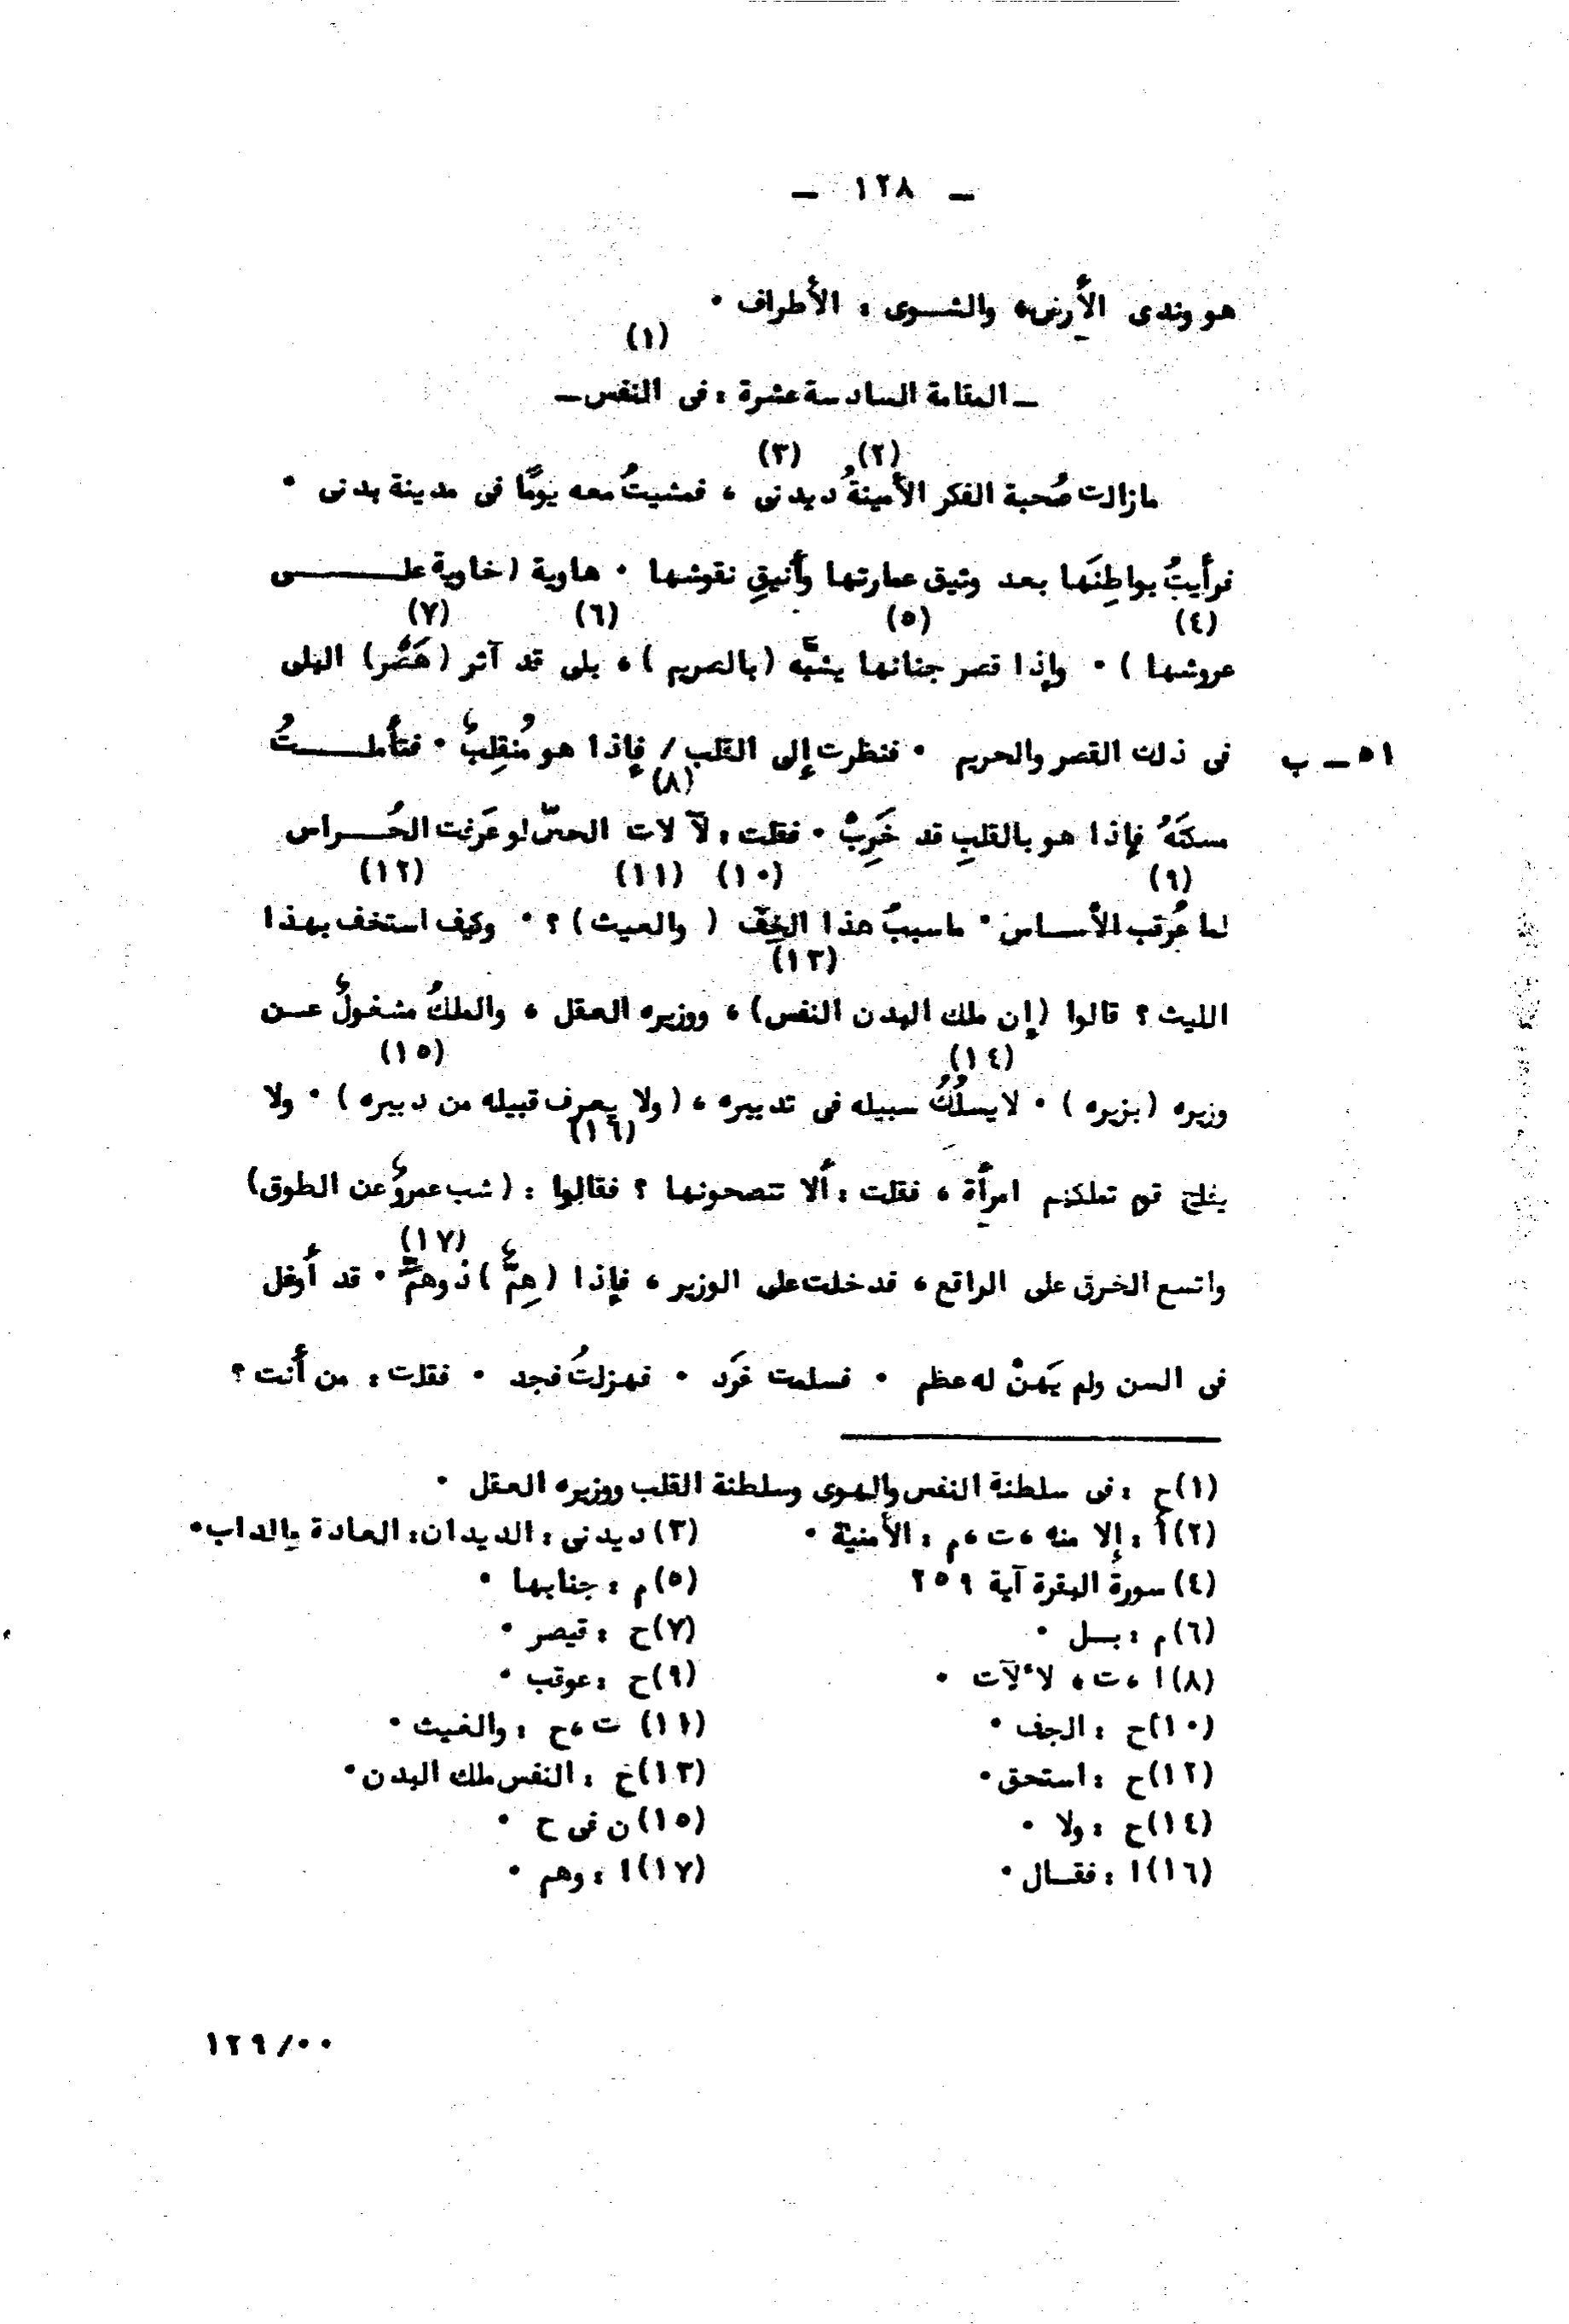 ـ ١٢٨ ـ
هو وندى الأرض، والشوى : الأطراف .
(١)
ـ المقامة السادسة عشرة : فى النفس ـ
(٢) (٣)
مازالت صُحبة الفكر الأمينةُ ديدنى ، فمشيتُ معه يومًا فى مدينة بدنى .
فرأيتُ بواطِنَها بعد وثيق عمارتها وأنيقِ نقوشها . هاوية (خاوية على
(٤) (٥) (٦) (٧)
عروشها ) . وإذا قصر جنانها يشبَّه (بالصريم ) ، بلى قد آثر (هَصْر) البلى
٥١ ـ ب فى ذلك القصر والحريم . فنظرت إلى القلب / فإذا هو مُنقِلبٌ . فتأملتُ
(٨)
مسكنَهُ فإذا هو بالقلبِ قد خَرِبْ . فقلت : لآ لات الحسّ لو عَرفت الحُراس
(٩) (١٠) (١١) (١٢)
لما عُرقب الأساس . ماسببُ هذا الخِفّ ( والعيث ) ؟ . وكيف استخف بهذا
(١٣)
الليث ؟ قالوا (إن ملك البدن النفس) ، ووزيره العقل ، والملكُ مشغولٌ عن
(١٤) (١٥)
وزيره (بزيره ) . لا يسلُكُ سبيله فى تدبيره ، (ولا يعرف قبيله من دبيره ) . ولا
(١٦)
يفلح قوم تملكهم امرأة ، فقلت : ألا تنصحونها ؟ فقالوا : (شب عمروٌ عن الطوق)
(١٧)
واتسع الخرق على الراقع ، قد دخلت على الوزير ، فإذا (هِمٌّ ) ذوهمٍّ . قد أوغل
فى السن ولم يَهنْ له عظم . فسلمت فرَد . فهزلتُ فجد . فقلت : من أنت ؟
(١)ح : فى سلطنة النفس والهوى وسلطنة القلب ووزيره العقل .
(٢)أ : إلا منه ، ت ،م : الأمنيّة . (٣) ديدنى : الديدان: العادة والداب.
(٤) سورة البقرة آية ٢٥٩ (٥)م : جنابها .
(٦)م : بل . (٧)ح : قيصر .
(٨)ا ، ت ، لا ٔلآت . (٩)ح : عوقب .
(١٠)ح : الجف . (١١) ت ،ح : والغيث .
(١٢)ح : استحق . (١٣)خ : النفس ملك البدن .
(١٤)ح : ولا . (١٥)ن فى ح .
(١٦)ا : فقال . (١٧)ا : وهم .
١٢٩/٠٠